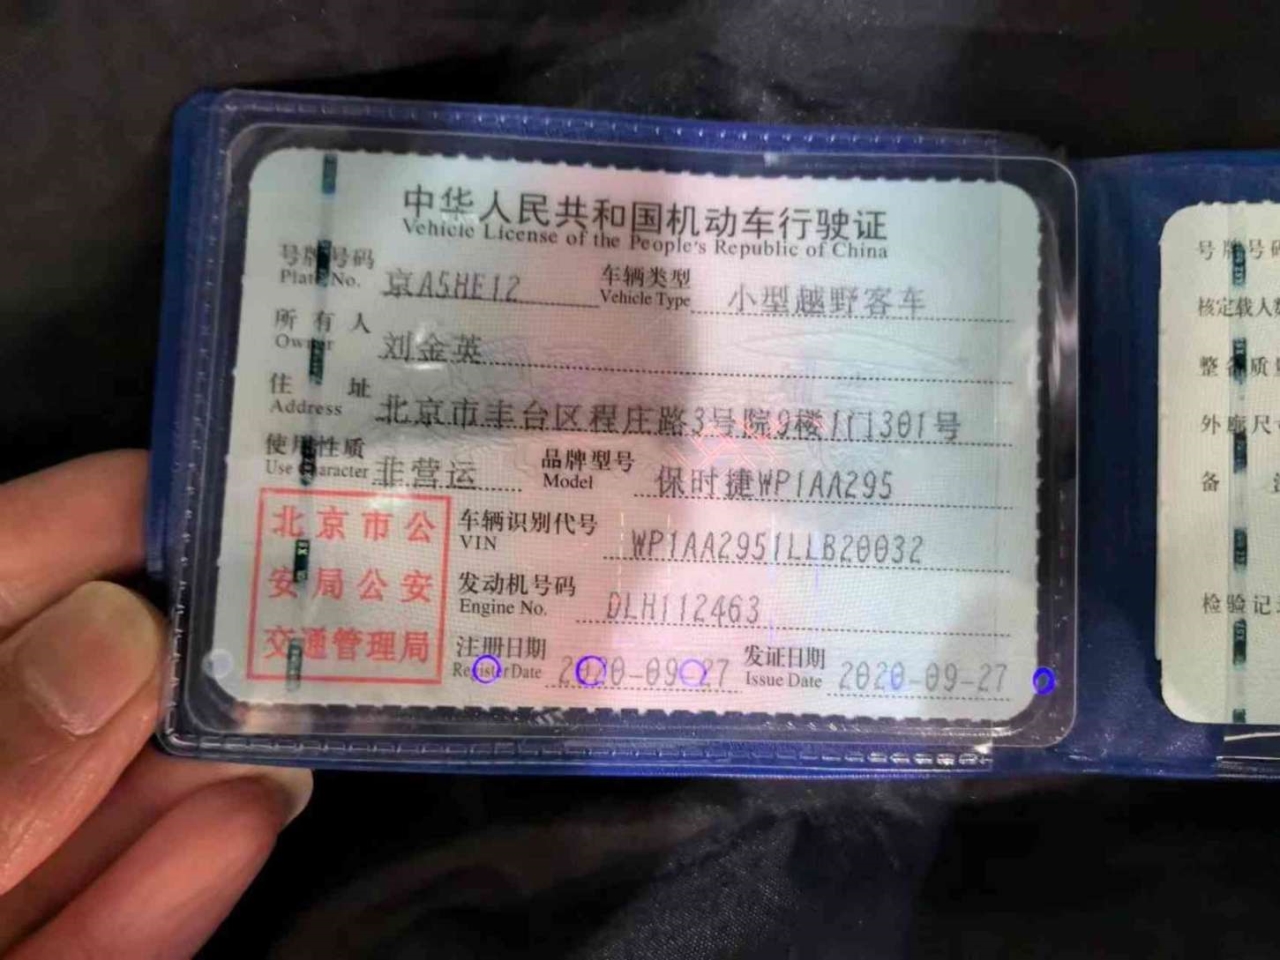 中华人民共和国机动车行驶证
Vehicle License of the People's Republic of China
号牌号码 京A5HE12 车辆类型 小型越野客车
Plate No. Vehicle Type
所有人 刘金英
Owner
住址 北京市丰台区程庄路3号院9楼1门1301号
Address
使用性质 非营运 品牌型号 保时捷WP1AA295
Use Character Model
北京市公
安局公安
交通管理局
车辆识别代号 WP1AA2951LLB20032
VIN
发动机号码 DLH112463
Engine No.
注册日期 2020-09-27 发证日期 2020-09-27
Register Date Issue Date
号牌号码
核定载人
整备质
外廓尺
备
检验记